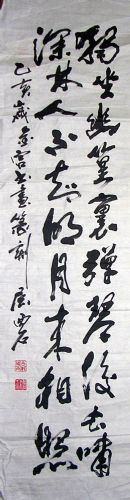 獨坐幽篁裏彈琴復長嘯
深林人不知明月來相照
乙亥歲 書畫篆刻